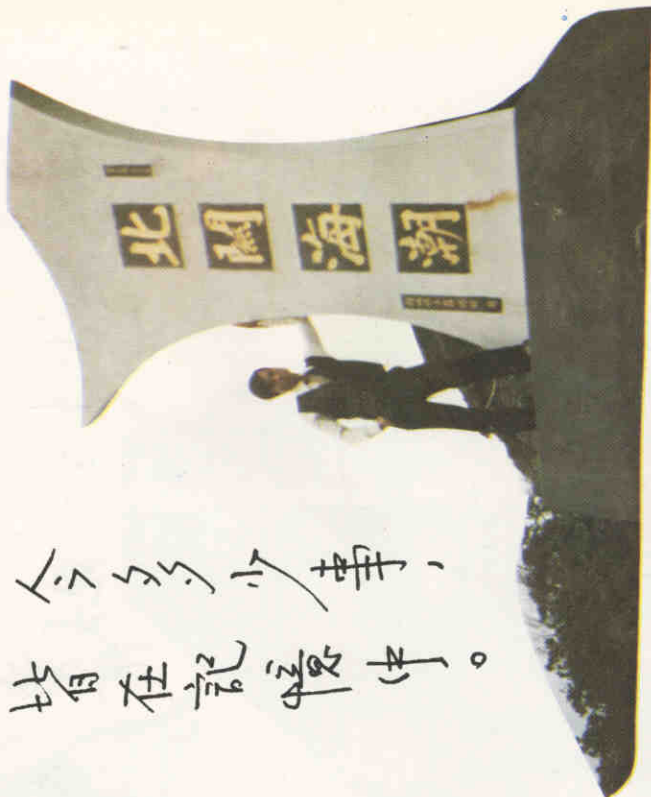 北關海潮
今多少事，
皆在記憶中。